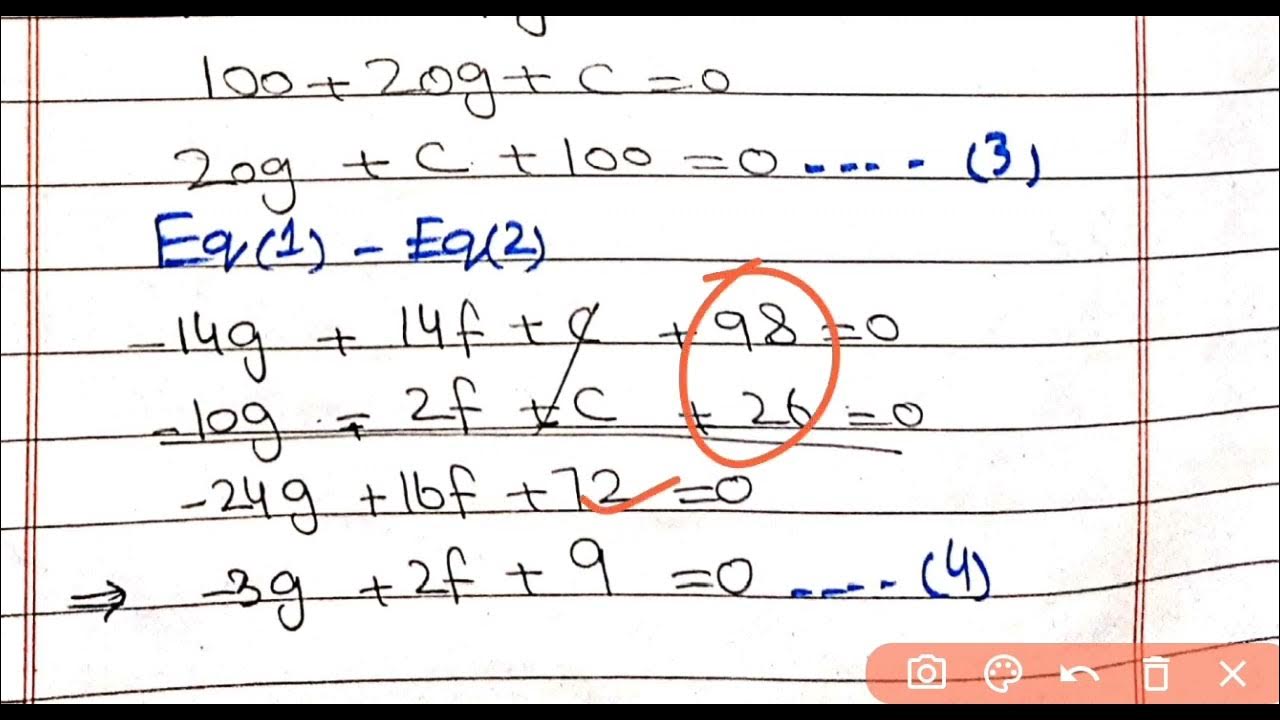 100 + 20g + C = 0
20g + C + 100 = 0 ---- (3)
Eq(1) - Eq(2)
-14g + 14f + C + 98 = 0
-10g - 2f + C + 26 = 0
-24g + 16f + 72 = 0
⇒ -3g + 2f + 9 = 0 ---- (4)